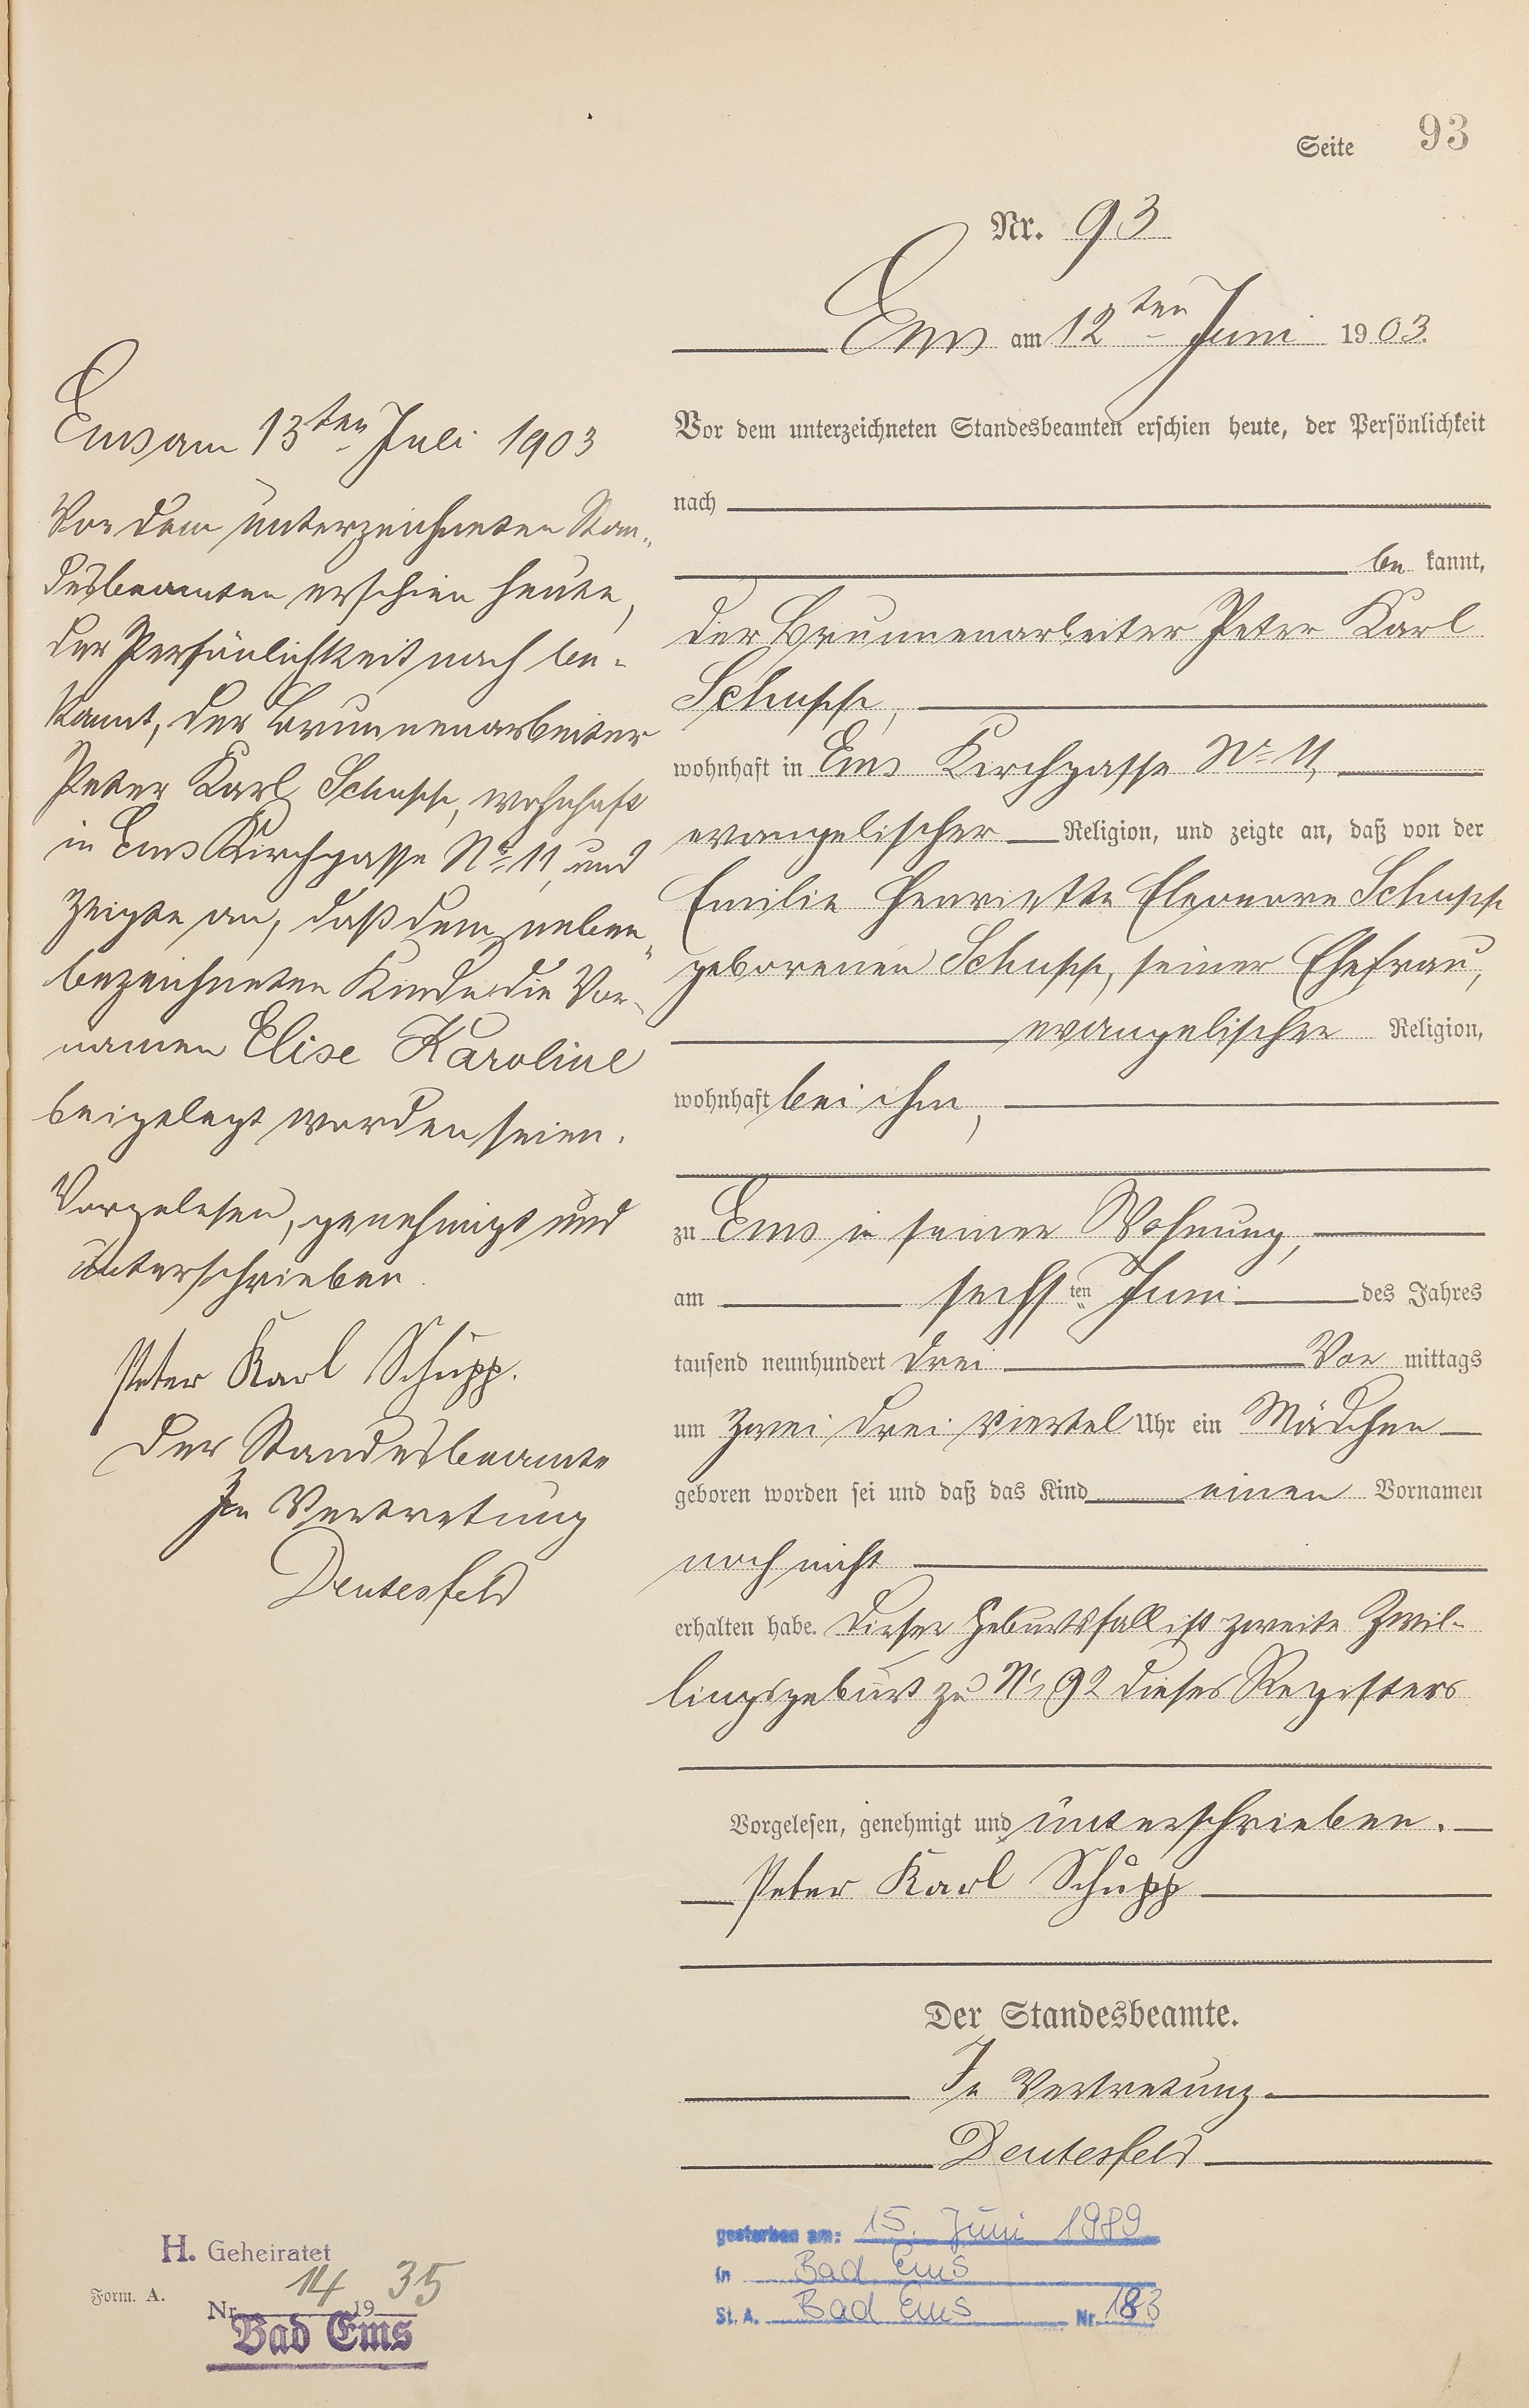 Seite 93
Nr. 93
Ems am 12ten Juni 1903.
Vor dem unterzeichneten Standesbeamten erschien heute, der Persönlichkeit
nach
be kannt,
der Brunnenarbeiter Peter Karl
Schupp,
wohnhaft in Ems Kirchgasse No 11,
evangelischer Religion, und zeigte an, daß von der
Emilie Henriette Eleonore Schupp
geborenen Schupp, seiner Ehefrau,
evangelischer Religion,
wohnhaft bei ihm,
zu Ems in seiner Wohnung,
am sechsten Juni des Jahres
tausend neunhundert drei Vor mittags
um zwei drei viertel Uhr ein Mädchen
geboren worden sei und daß das Kind einen Vornamen
noch nicht
erhalten habe. Dieser Geburtsfall ist zweite Zwil-
lingsgeburt zu No 92 dieses Registers
Vorgelesen, genehmigt und unterschrieben.
Peter Karl Schupp
Der Standesbeamte.
In Vertretung.
Deutesfeld
Ems am 13ten Juli 1903
Vor dem unterzeichneten Stan-
desbeamten erschien heute,
der Persönlichkeit nach be-
kannt, der Brunnenarbeiter
Peter Karl Schupp, wohnhaft
in Ems Kirchgasse No 11, und
zeigte an, daß dem neben-
bezeichneten Kinde die Vor-
namen Elise Karoline
beigelegt worden seien.
Vorgelesen, genehmigt und
unterschrieben.
Peter Karl Schupp.
Der Standesbeamte
In Vertretung
Deutesfeld
gestorben am: 15. Juni 1989
in Bad Ems
St. A. Bad Ems Nr. 183
H. Geheiratet
Form. A.
Nr. 14 1935
Bad Ems